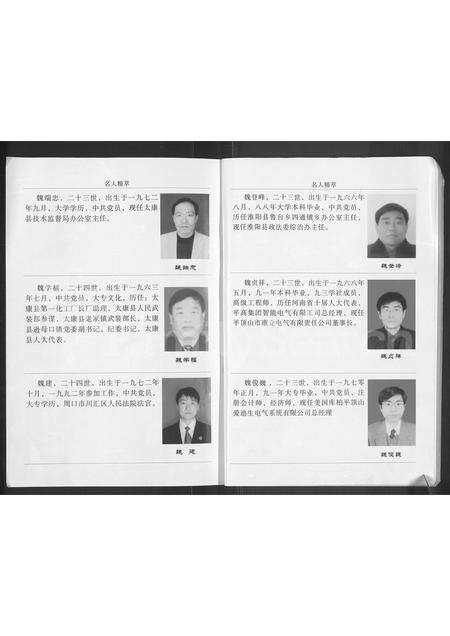 名人精萃
魏瑞忠，二十三世，出生于一九七二
年九月，大学学历，中共党员，现任太康
县技术监督局办公室主任。
魏瑞忠
魏学福，二十四世，出生于一九六三
年七月，中共党员，大专文化，历任：太
康县第一化工厂长厂助理，太康县人民武
装部参谋、太康县老冢镇武装部长，太康
县逊母口镇党委副书记，纪委书记，太康
县人大代表。
魏学福
魏建，二十四世，出生于一九七二年
十月，一九九二年参加工作，中共党员，
大专学历，周口市川汇区人民法院法官。
魏 建
名人精萃
魏登峰，二十三世，出生于一九六六年
八月，八八年大学本科毕业，中共党员，
历任淮阳县鲁台乡四通镇乡办公室主任，
现任淮阳县政法委综治办主任。
魏登峰
魏贞祥，二十三世，出生于一九六八年
五月，九一年本科毕业，九三学社成员，
高级工程师，历任河南省十届人大代表、
平高集团智能电气有限工司总经理，现任
平顶山市 电气有限责任公司董事长。
魏贞祥
魏俊巍，二十三世，出生于一九七零
年正月，九一年大专毕业，中共党员，注
册会计师、经济师，现任美国库柏平顶山
爱迪生电气系统有限公司总经理
魏俊巍